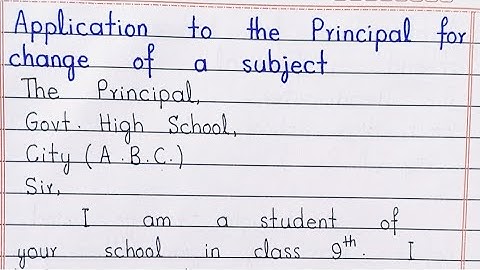 Application to the Principal for
change of a subject
The Principal,
Govt. High School,
City (A.B.C.)
Sir,
I am a student of
your school in class 9th. I